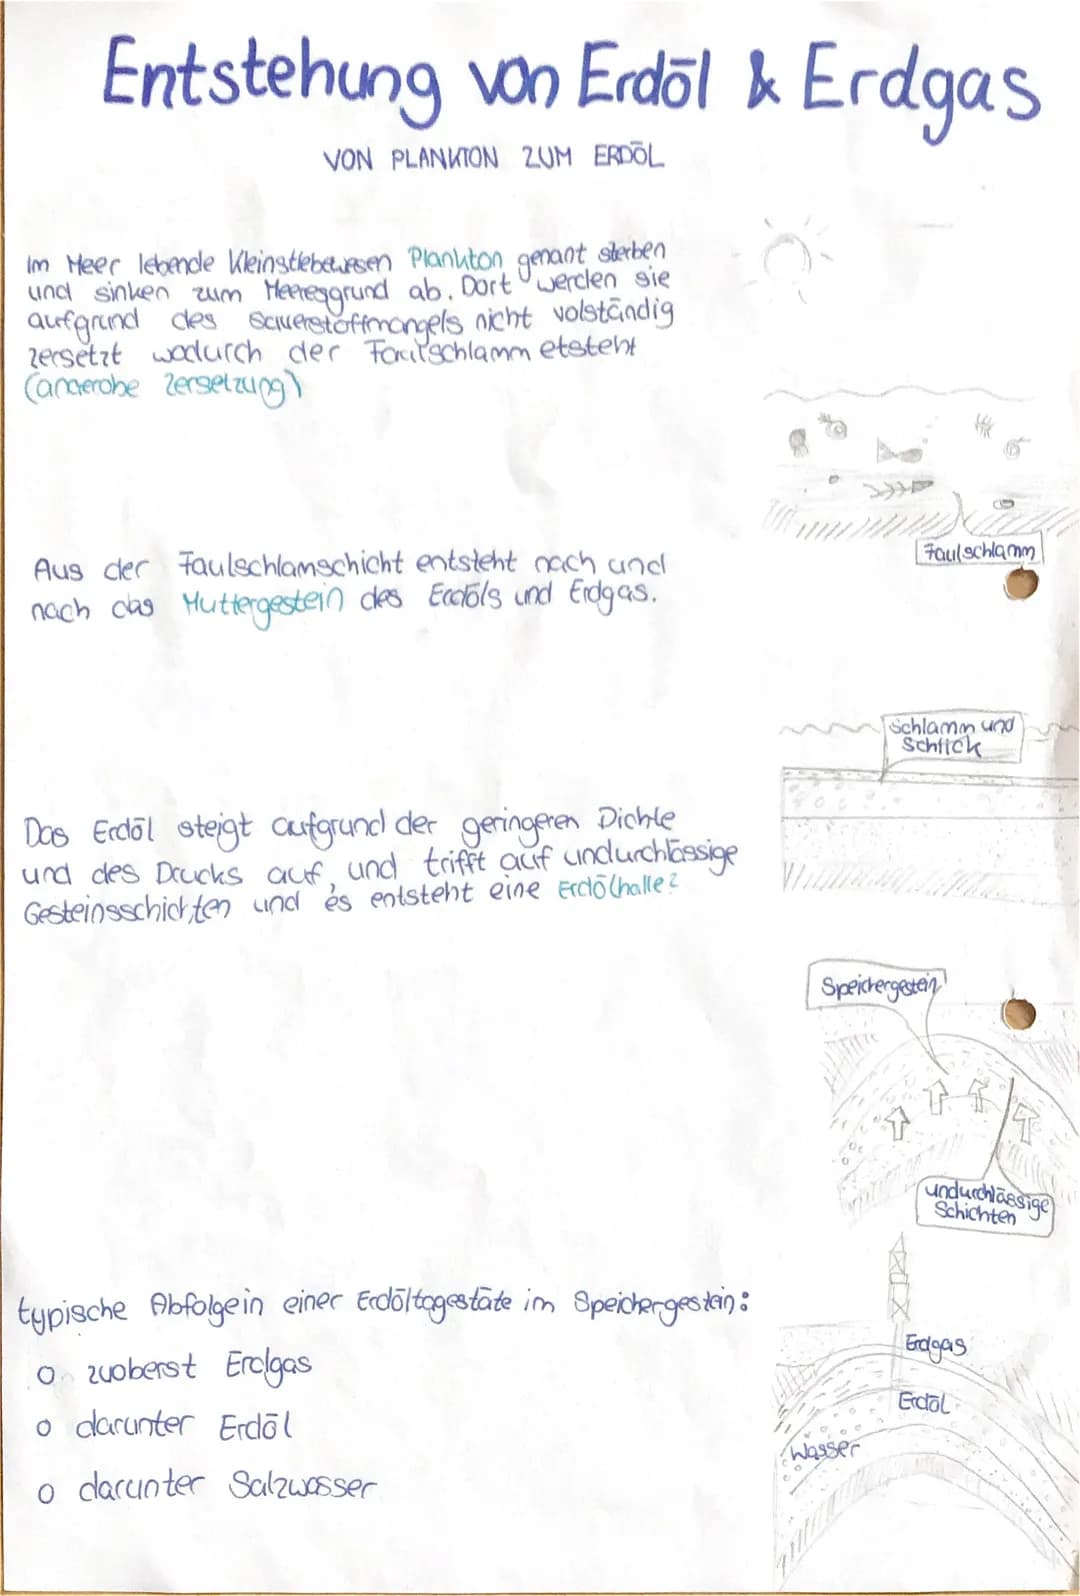 Entstehung von Erdöl & Erdgas
VON PLANKTON ZUM ERDÖL
Im Meer lebende Kleinstlebewesen Plankton genant sterben
und sinken zum Meeresgrund ab. Dort werden sie
aufgrund des Sauerstoffmangels nicht volständig
zersetzt wodurch der Faulschlamm etsteht
(anaerobe Zersetzung)
Faulschlamm
Aus der Faulschlamschicht entsteht nach und
nach das Muttergestein des Erdöls und Erdgas.
Schlamm und
Schlick
Das Erdöl steigt aufgrund der geringeren Dichte
und des Drucks auf, und trifft auf undurchlässige
Gesteinsschichten und es entsteht eine Erdölhalle?
Speichergestein
undurchlässige
Schichten
typische Abfolge in einer Erdöltagestäte im Speichergestein:
o zuoberst Erdgas
o darunter Erdöl
o darunter Salzwasser
Erdgas
Erdöl
Wasser